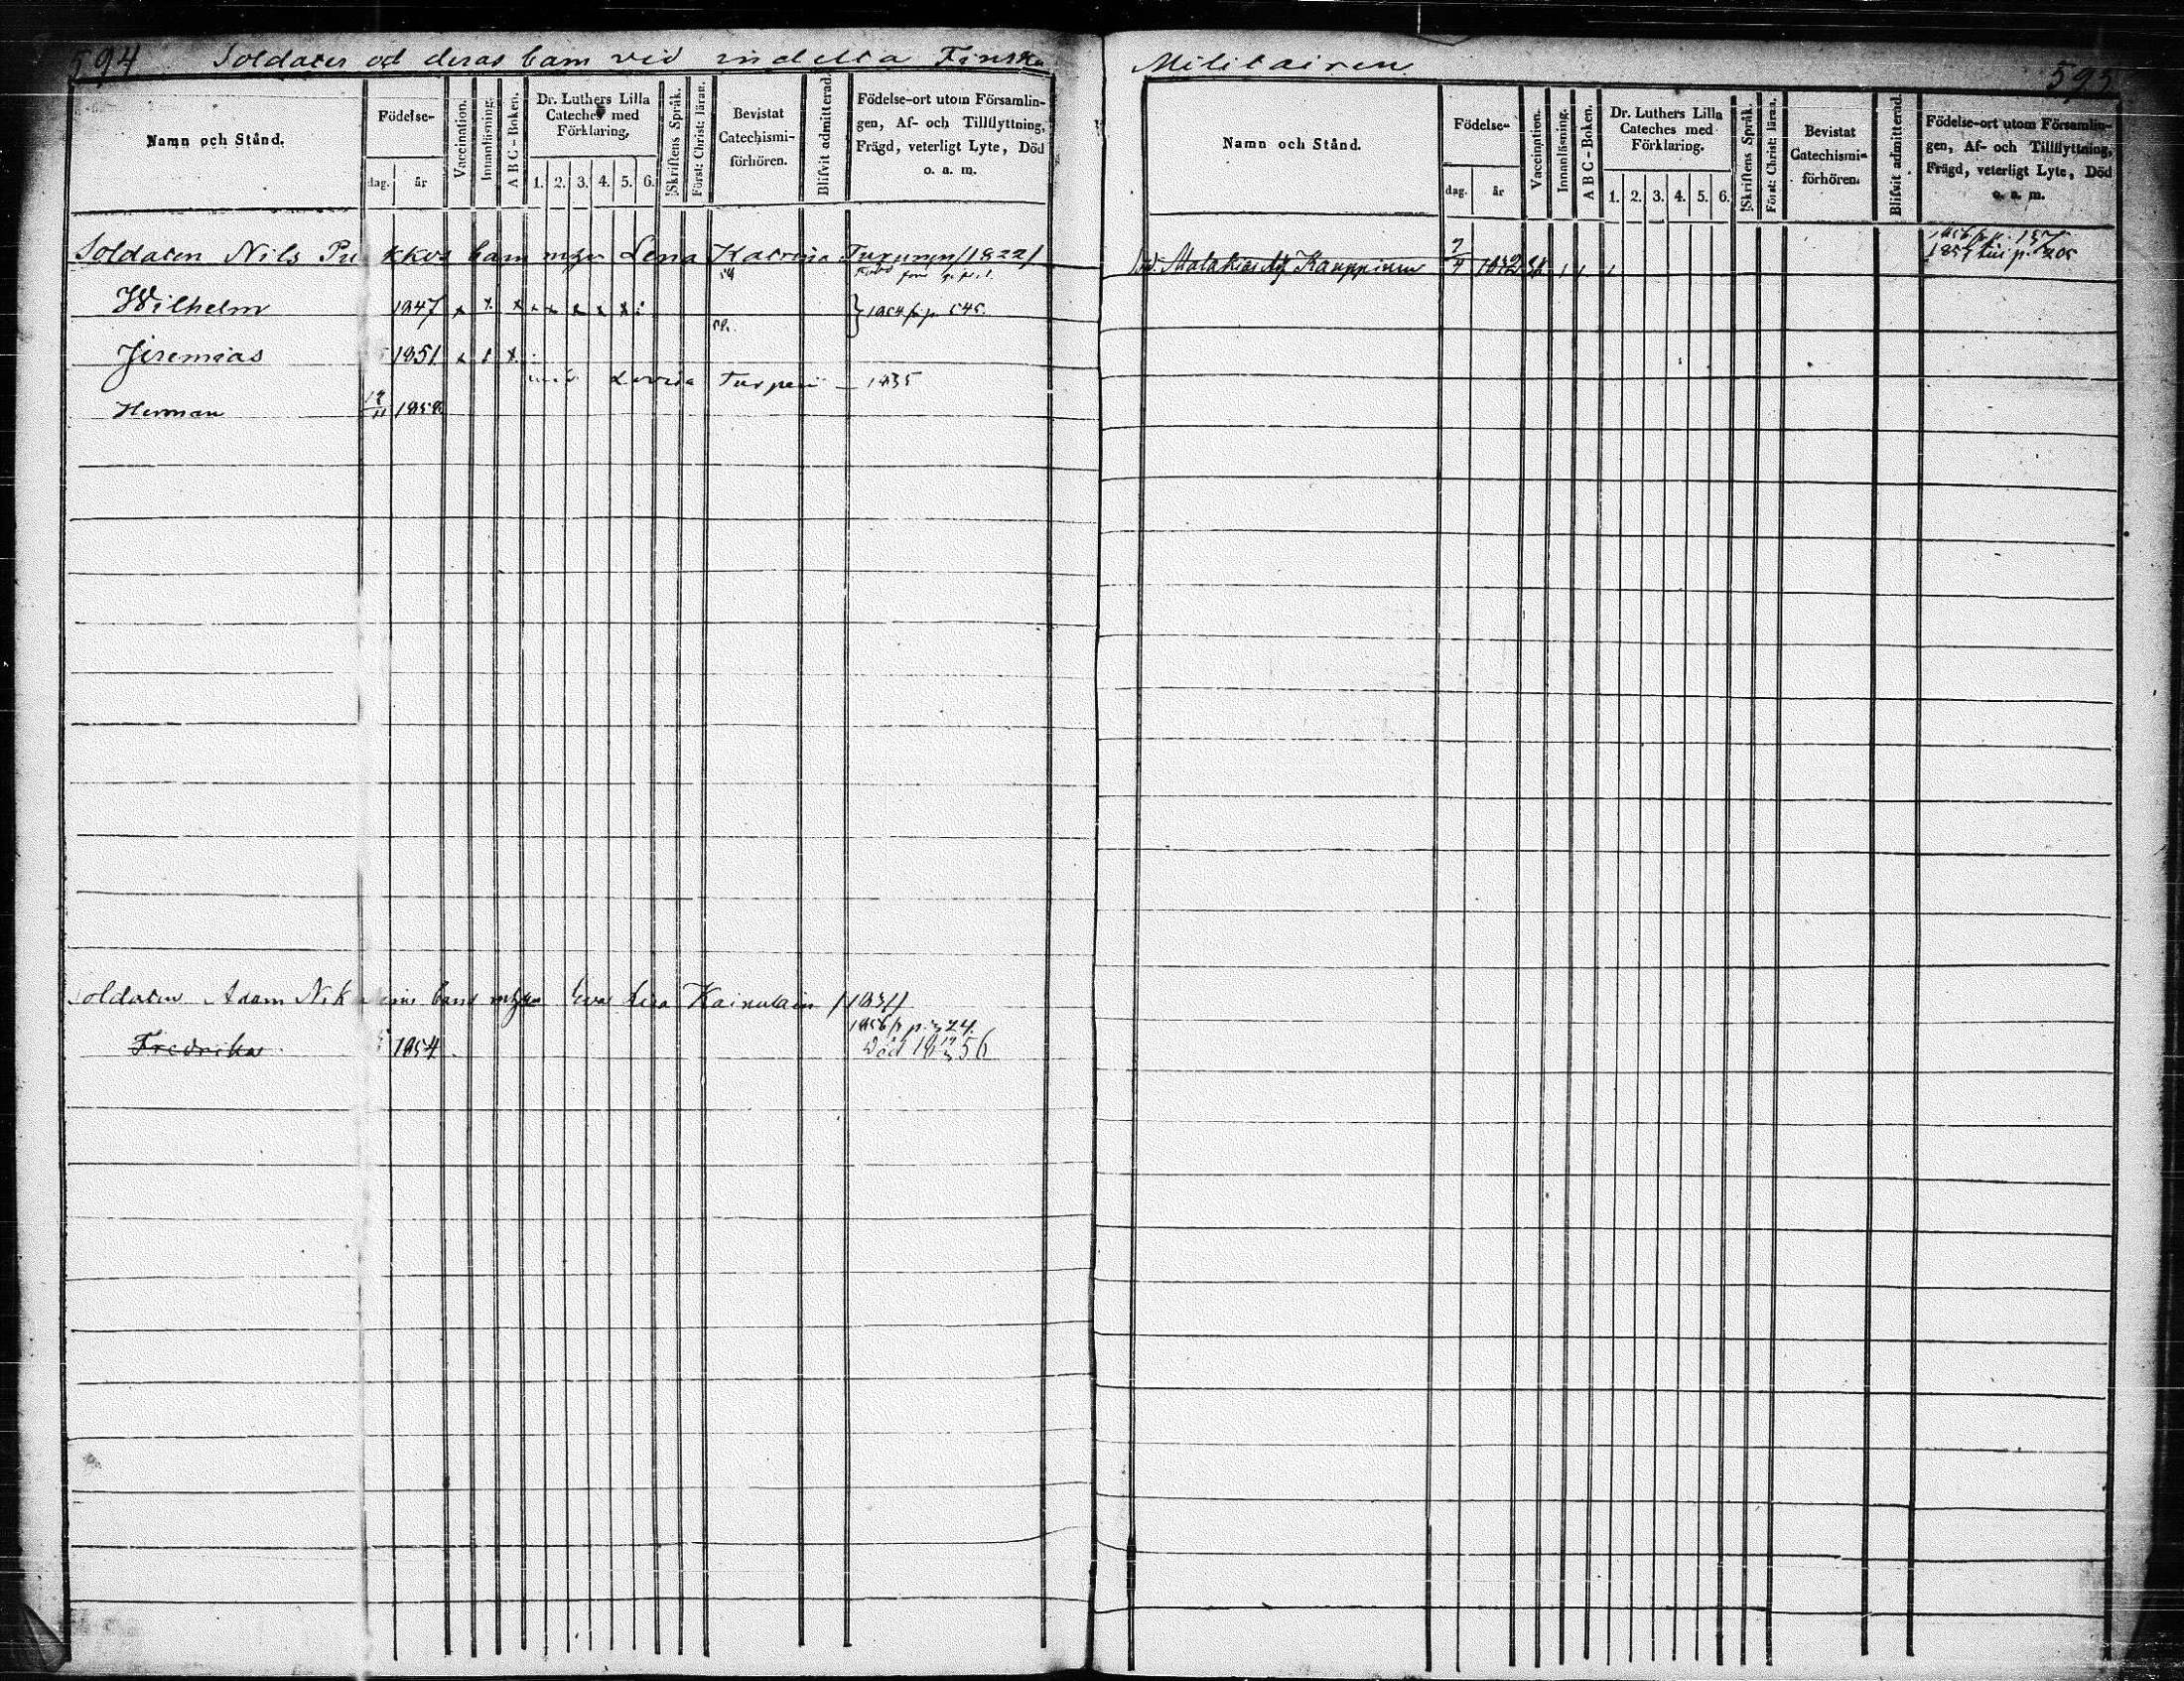 594 Soldater od deras barn vid indelta Finska
Namn och Stånd.
Födelse-
dag. år
Vaccination.
Innanläsning.
A B C - Boken.
Dr. Luthers Lilla
Cateches med
Förklaring,
1. 2. 3. 4. 5. 6.
Skriftens Språk.
Först: Christ: läran.
Bevistat
Catechismi-
förhören.
Blifvit admitterad.
Födelse-ort utom Församlin-
gen, Af- och Tillflyttning,
Frägd, veterligt Lyte, Död
o. a. m.
Soldaten Nils Pu kkos barn Lena Katrina Turunen /1822/
Wilhelm 1847 1854 p. 545.
Jeremias 1851
Lovisa Turpein 1835
Herman 1858
Soldaten Adam Nik Eva Lisa Kainulain /1831/
1856 p. 324.
Fredrika 1854 Död 56
Militairen 595
Namn och Stånd.
Födelse-
dag. år
Vaccination.
Innanläsning.
A B C - Boken.
Dr. Luthers Lilla
Cateches med
Förklaring.
1. 2. 3. 4. 5. 6.
Skriftens Språk.
Först: Christ: lära.
Bevistat
Catechismi-
förhören.
Blifvit admitterad.
Födelse-ort utom Församlin-
gen, Af- och Tillflyttning,
Frägd, veterligt Lyte, Död
o. a. m.
Malakias Kauppinen 7/4 1832
1857 till p. 205